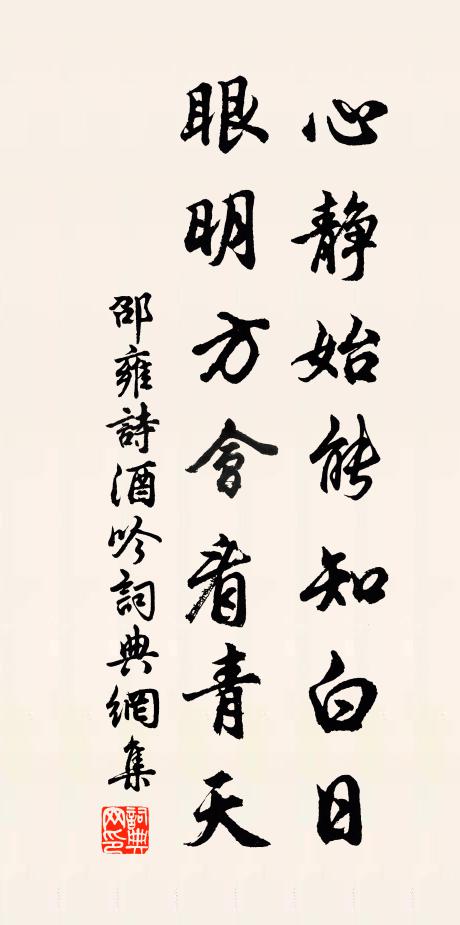 心静始能知白日
眼明方會看青天
邵雍詩酒吟詞典網集
詞典網印